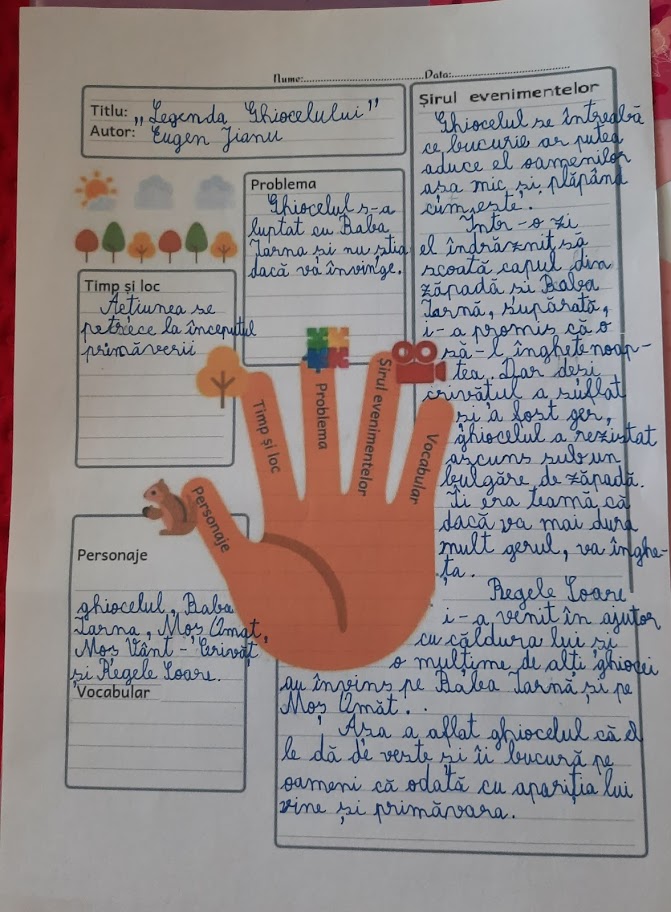 Nume:....................Data:....................
Titlu: „Legenda Ghiocelului”
Autor: Eugen Jianu
Problema
Ghiocelul s-a
luptat cu Baba
Iarna și nu știa
dacă va învinge.
Timp și loc
Acțiunea se
petrece la începutul
primăverii
Personaje
ghiocelul, Baba
Iarna, Moș Omăt,
Moș Vânt-Crivăț
și Regele Soare.
Vocabular
Personaje
Timp și loc
Problema
Șirul evenimentelor
Vocabular
Șirul evenimentelor
Ghiocelul se întreabă
ce bucurie ar putea
aduce el oamenilor
așa mic și plăpând
cum este.
Într-o zi
el îndrăznit să
scoată capul din
zăpadă și Baba
Iarnă, supărată,
i-a promis că o
să-l înghețe noap-
tea. Dar deși
crivățul a suflat
și a fost ger,
ghiocelul a rezistat
ascuns sub un
bulgăre de zăpadă.
Îi era teamă că
dacă va mai dura
mult gerul, va înghe-
ța.
Regele Soare
i-a venit în ajutor
cu căldura lui și
o mulțime de alți ghiocei
au învins pe Baba Iarnă și pe
Moș Omăt..
Așa a aflat ghiocelul că el
le dă de veste și îi bucură pe
oameni că odată cu apariția lui
vine și primăvara.